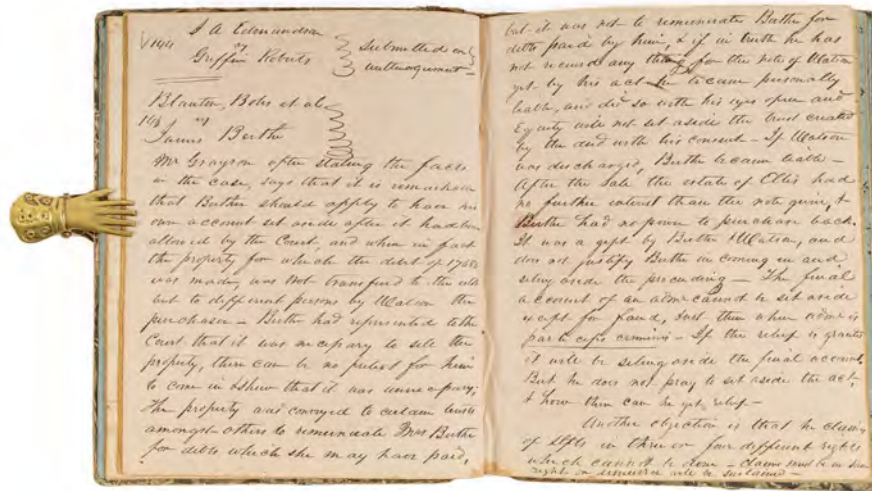 J A Edmundson
144 vs
Griffin Roberts
Submitted on
without argument—
Blanton, Bobs et al
146 vs
James Berthe
Mr Grayson after stating the facts
in the case, says that it is remarkable
that Berthe should apply to have his
own account set aside after it had been
allowed by the Court, and when in fact
the property for which the debt of 1768
was made, was not transferred to the
but to different persons by Watson the
purchaser — Berthe had represented to the
Court that it was necessary to sell the
property, there can be no pretext for him
to come in & shew that it was unnecessary;
The property was conveyed to certain
amongst others to remunerate Mrs Berthe
for debts which she may have paid,
but it was not to remunerate Berthe for
debts paid by him, & if in truth he has
not received any thing for the note of Watson
yet by his act he became personally
liable, and did so with his eyes open and
Equity will not set aside the trust created
by the deed with his consent — If Watson
was discharged, Berthe became liable —
After the sale the estate of Ellis had
no further interest than the note given, &
Berthe had no power to purchase back.
It was a gift by Berthe & Watson, and
does not justify Berthe in coming in and
seting aside the preceeding — The final
account of an admr cannot be set aside
except for fraud, & not then when admr is
particeps criminis — If the relief is granted
it will be seting aside the final account.
But he does not pray to set aside the act,
& how then can he get relief —
Another objection is that he claims
of in three or four different rights
which cannot be done — Claims must be in
right or demurrer will be sustained —